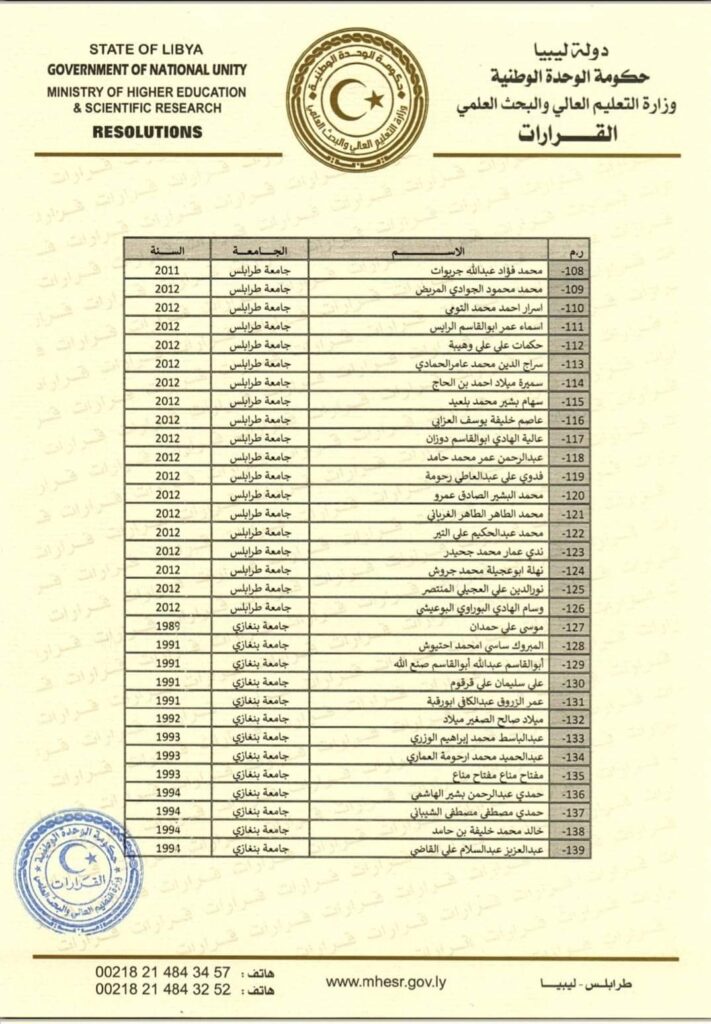 STATE OF LIBYA
GOVERNMENT OF NATIONAL UNITY
MINISTRY OF HIGHER EDUCATION
& SCIENTIFIC RESEARCH
RESOLUTIONS
حكومة الوحدة الوطنية
وزارة التعليم العالي والبحث العلمي
دولة ليبيا
حكومة الوحدة الوطنية
وزارة التعليم العالي والبحث العلمي
القـــرارات
ر.م الاســـم الجـامعـة السـنة
108- محمد فؤاد عبدالله جربوات جامعة طرابلس 2011
109- محمد محمود الجوادي المريض جامعة طرابلس 2012
110- اسرار احمد محمد التومي جامعة طرابلس 2012
111- اسماء عمر ابوالقاسم الرايس جامعة طرابلس 2012
112- حكمات علي علي وهيبة جامعة طرابلس 2012
113- سراج الدين محمد عامرالحمادي جامعة طرابلس 2012
114- سميرة ميلاد احمد بن الحاج جامعة طرابلس 2012
115- سهام بشير محمد بلعيد جامعة طرابلس 2012
116- عاصم خليفة يوسف العزابي جامعة طرابلس 2012
117- عالية الهادي ابوالقاسم دوزان جامعة طرابلس 2012
118- عبدالرحمن عمر محمد حامد جامعة طرابلس 2012
119- فدوي علي عبدالعاطي رحومة جامعة طرابلس 2012
120- محمد البشير الصادق عمرو جامعة طرابلس 2012
121- محمد الطاهر الطاهر الغرياني جامعة طرابلس 2012
122- محمد عبدالحكيم علي التير جامعة طرابلس 2012
123- ندي عمار محمد جحيدر جامعة طرابلس 2012
124- نهلة ابوعجيلة محمد جروش جامعة طرابلس 2012
125- نورالدين علي العجيلي المنتصر جامعة طرابلس 2012
126- وسام الهادي البوراوي البوعيشي جامعة طرابلس 2012
127- موسى علي حمدان جامعة بنغازي 1989
128- المبروك ساسي امحمد احتيوش جامعة بنغازي 1991
129- أبوالقاسم عبدالله أبوالقاسم صنع الله جامعة بنغازي 1991
130- علي سليمان علي قرقوم جامعة بنغازي 1991
131- عمر الزروق عبدالكافي ابورقبة جامعة بنغازي 1991
132- ميلاد صالح الصغير ميلاد جامعة بنغازي 1992
133- عبدالباسط محمد إبراهيم الوزري جامعة بنغازي 1993
134- عبدالحميد محمد ارحومة العماري جامعة بنغازي 1993
135- مفتاح مناع مفتاح مناع جامعة بنغازي 1993
136- حمدي عبدالرحمن بشير الهاشمي جامعة بنغازي 1994
137- حمدي مصطفى مصطفى الشيباني جامعة بنغازي 1994
138- خالد محمد خليفة بن حامد جامعة بنغازي 1994
139- عبدالعزيز عبدالسلام علي القاضي جامعة بنغازي 1994
حكومة الوحدة الوطنية
القرارات
وزارة التعليم العالي والبحث العلمي
هاتف : 00218 21 484 34 57
هاتف : 00218 21 484 32 52
www.mhesr.gov.ly
طرابلس - ليبيـا